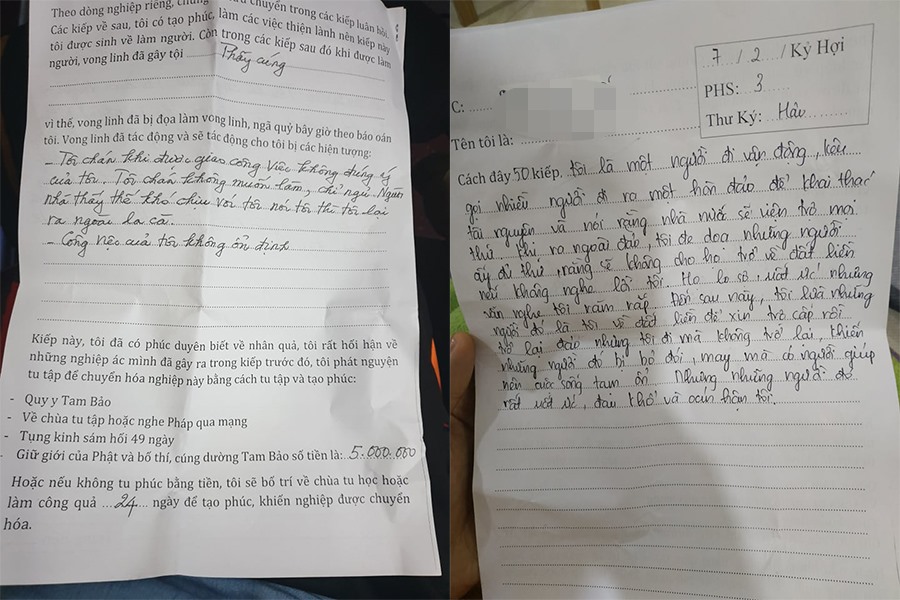 Theo dòng nghiệp riêng, chúng chuyển trong các kiếp luân hồi.
Các kiếp về sau, tôi có tạo phúc, làm các việc thiện lành nên kiếp này
tôi được sinh về làm người. Còn trong các kiếp sau đó khi được làm
người, vong linh đã gây tội Thầy cúng
vì thế, vong linh đã bị đọa làm vong linh, ngã quỷ bây giờ theo báo oán
tôi. Vong linh đã tác động và sẽ tác động cho tôi bị các hiện tượng:
- Tôi chán khi được giao công việc không đúng ý
của tôi. Tôi chán không muốn làm, chỉ ngủ. Người
nhà thấy thế khó chịu với tôi nói tôi thì tôi lại
ra ngoài la cà.
- Công việc của tôi không ổn định
Kiếp này, tôi đã có phúc duyên biết về nhân quả, tôi rất hối hận về
những nghiệp ác mình đã gây ra trong kiếp trước đó, tôi phát nguyện
tu tập để chuyển hóa nghiệp này bằng cách tu tập và tạo phúc:
- Quy y Tam Bảo
- Về chùa tu tập hoặc nghe Pháp qua mạng
- Tụng kinh sám hối 49 ngày
- Giữ giới của Phật và bố thí, cúng dường Tam Bảo số tiền là: 5.000.000
Hoặc nếu không tu phúc bằng tiền, tôi sẽ bố trí về chùa tu học hoặc
làm công quả 24 ngày để tạo phúc, khiến nghiệp được chuyển
hóa.
7 / 2 / Kỷ Hợi
PHS: 3
Thư Ký: Hậu
C:
Tên tôi là:
Cách đây 50 kiếp, tôi là một người đi vận động, kêu
gọi nhiều người đi ra một hòn đảo để khai thác
tài nguyên và nói rằng nhà nước sẽ viện trợ mọi
thứ. Khi ra ngoài đảo, tôi đe dọa những người
ấy đủ thứ, rằng sẽ không cho họ trở về đất liền
nếu không nghe lời tôi. Họ lo sợ, uất ức nhưng
vẫn nghe tôi răm rắp. Đến sau này, tôi lừa những
người đó là tôi về đất liền để xin trợ cấp rồi
trở lại đảo nhưng tôi đi mà không trở lại, khiến
những người đó bị bỏ đói, may mà có người giúp
nên cuộc sống tạm ổn. Nhưng những người đó
rất uất ức, đau khổ và oán hận tôi.